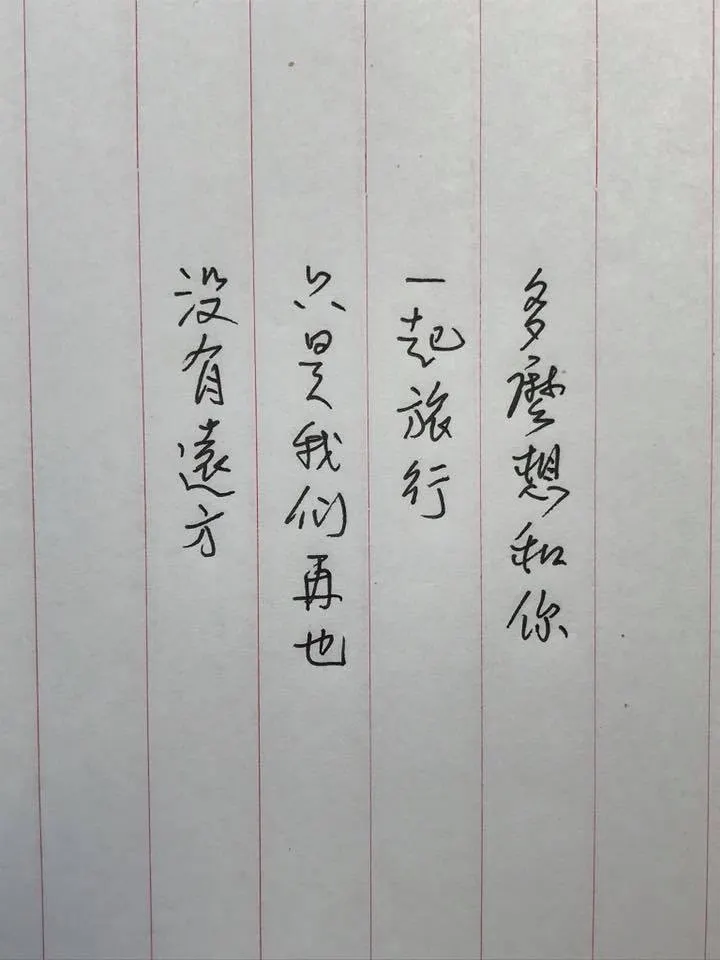 多麼想和你
一起旅行
只是我们再也
沒有遠方